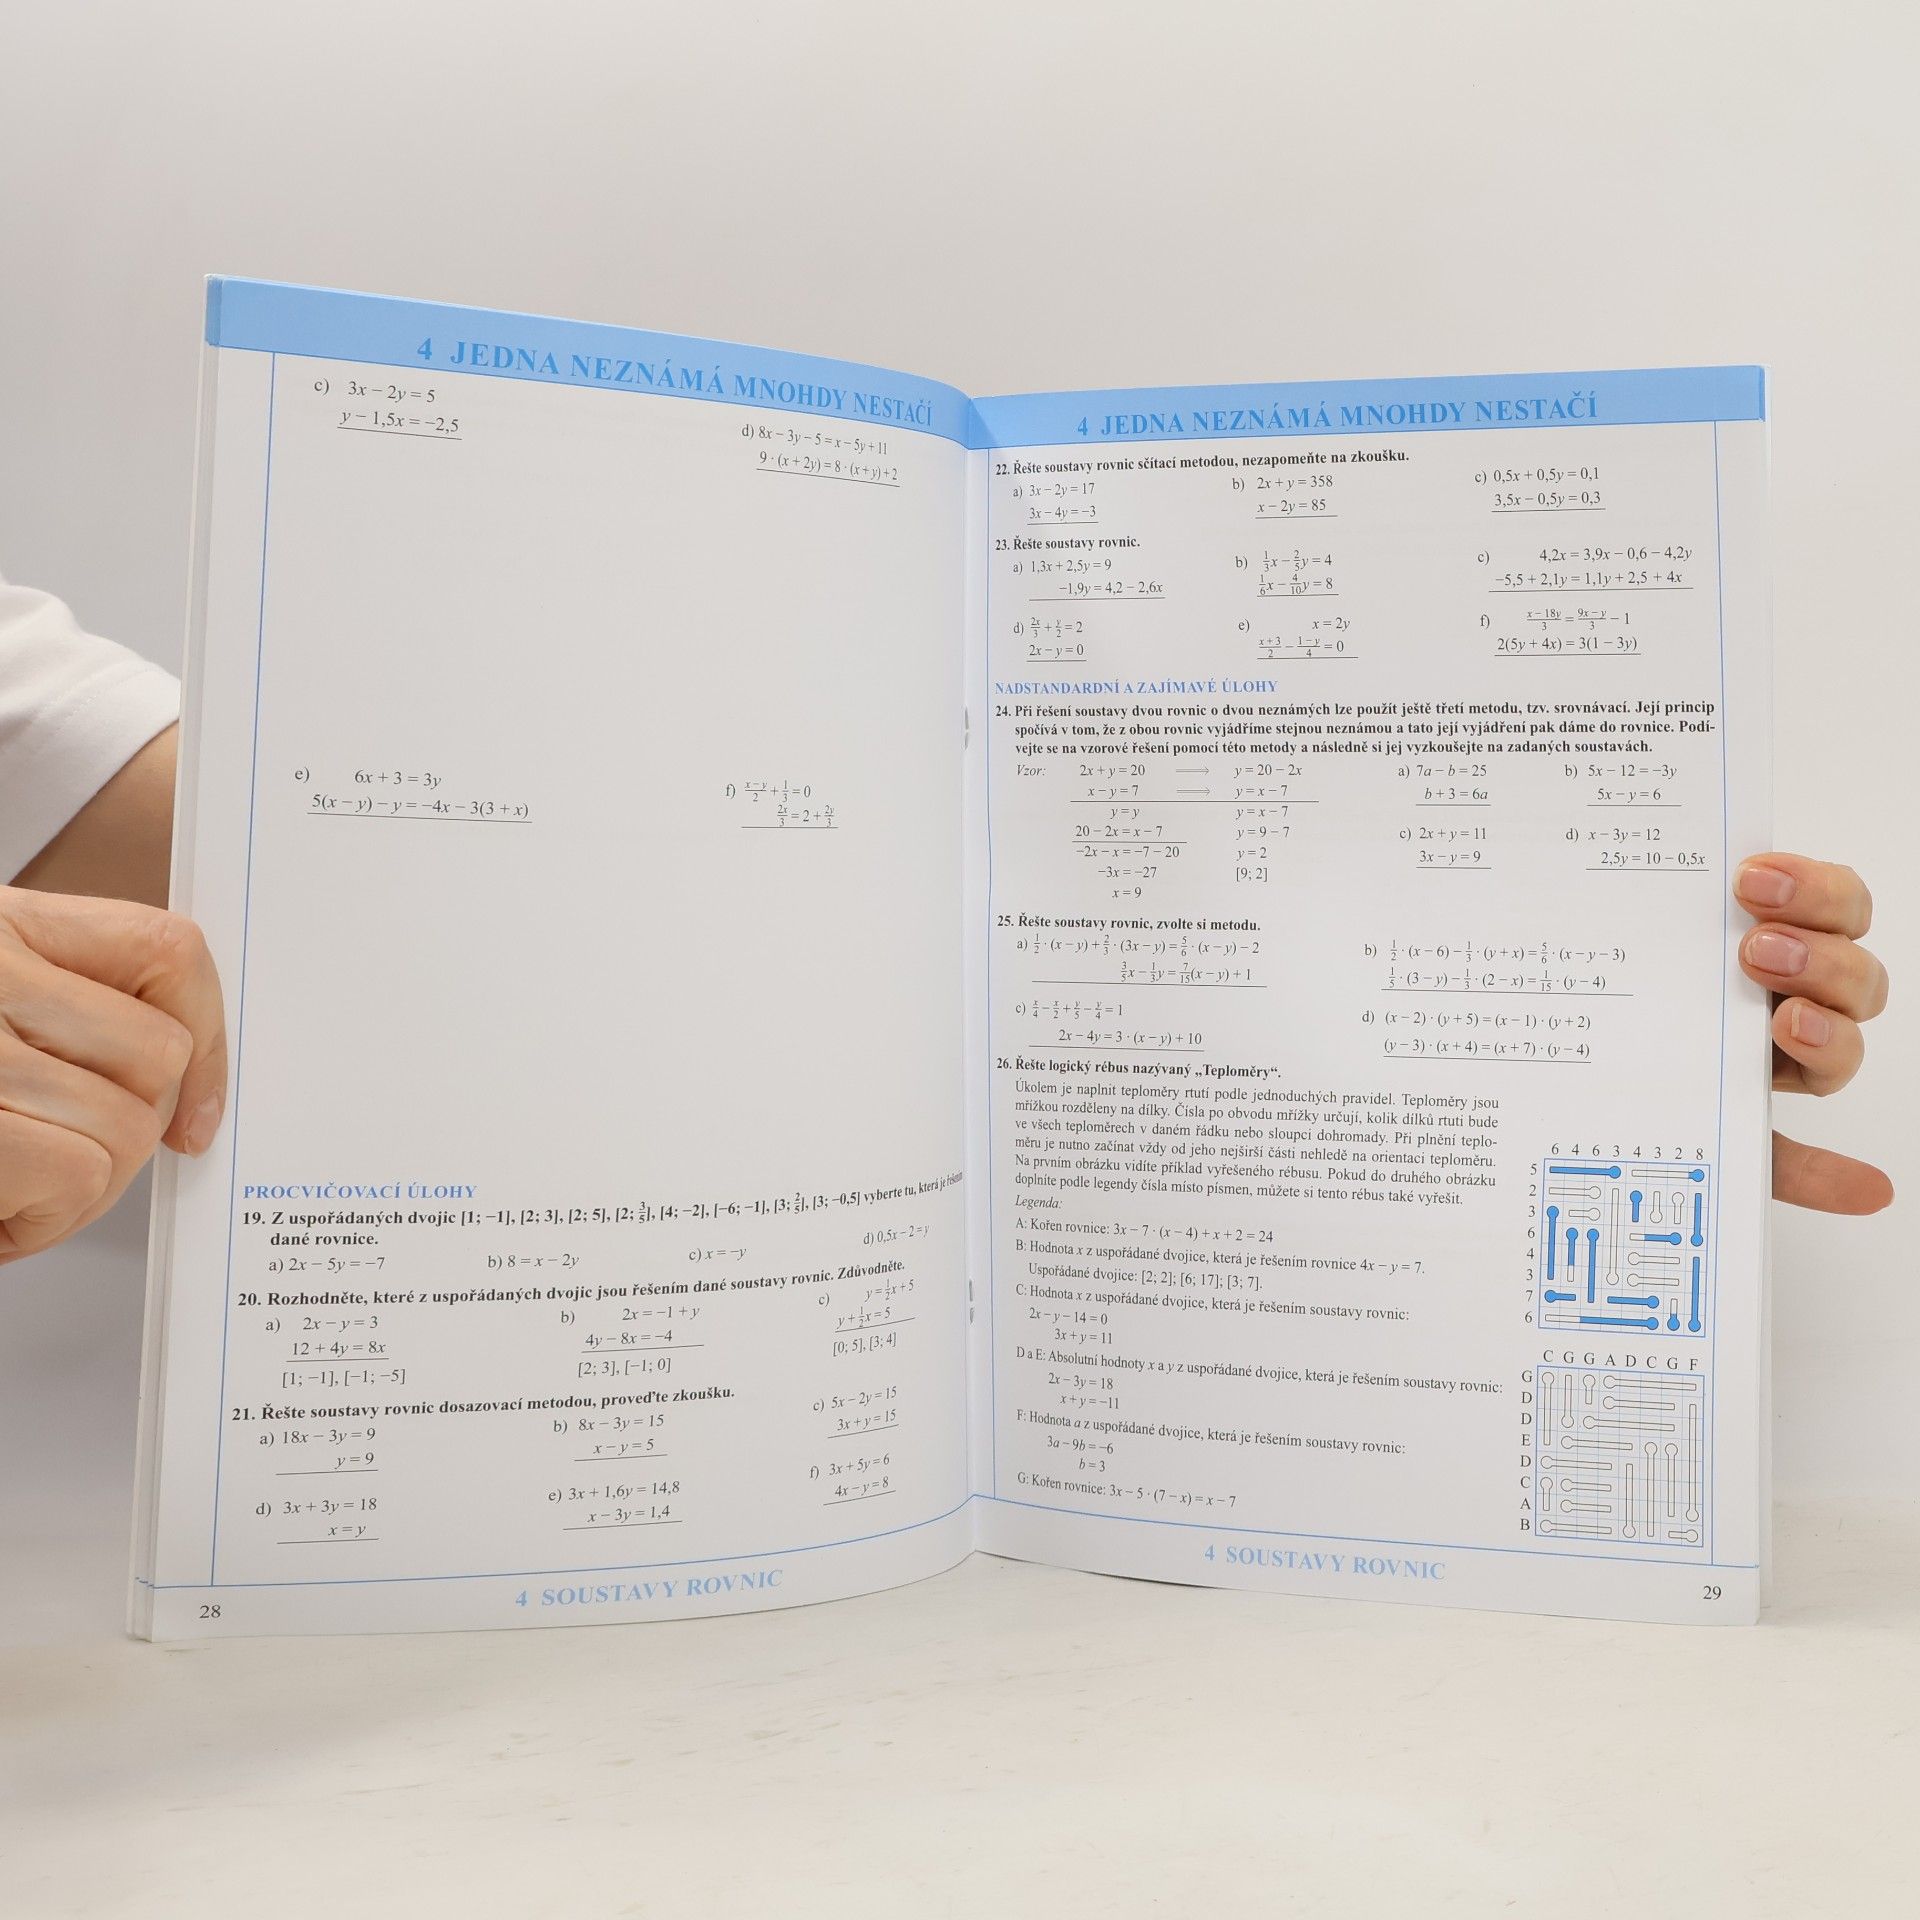 4 JEDNA NEZNÁMÁ MNOHDY NESTAČÍ
c) 3x − 2y = 5
y − 1,5x = −2,5
d) 8x − 3y − 5 = x − 5y + 11
9 · (x + 2y) = 8 · (x + y) + 2
e) 6x + 3 = 3y
5(x − y) − y = −4x − 3(3 + x)
f) (x − y)/2 + 1/3 = 0
2x/3 = 2 + 2y/3
PROCVIČOVACÍ ÚLOHY
19. Z uspořádaných dvojic [1; −1], [2; 3], [2; 5], [2; 3/5], [4; −2], [−6; −1], [3; 2/5], [3; −0,5] vyberte tu, která je řešením
dané rovnice.
a) 2x − 5y = −7 b) 8 = x − 2y c) x = −y d) 0,5x − 2 = y
20. Rozhodněte, které z uspořádaných dvojic jsou řešením dané soustavy rovnic. Zdůvodněte.
a) 2x − y = 3 b) 2x = −1 + y c) y = 1/2x + 5
12 + 4y = 8x 4y − 8x = −4 y + 1/2x = 5
[1; −1], [−1; −5] [2; 3], [−1; 0] [0; 5], [3; 4]
21. Řešte soustavy rovnic dosazovací metodou, proveďte zkoušku.
a) 18x − 3y = 9 b) 8x − 3y = 15 c) 5x − 2y = 15
y = 9 x − y = 5 3x + y = 15
d) 3x + 3y = 18 e) 3x + 1,6y = 14,8 f) 3x + 5y = 6
x = y x − 3y = 1,4 4x − y = 8
4 SOUSTAVY ROVNIC
28
4 JEDNA NEZNÁMÁ MNOHDY NESTAČÍ
22. Řešte soustavy rovnic sčítací metodou, nezapomeňte na zkoušku.
a) 3x − 2y = 17 b) 2x + y = 358 c) 0,5x + 0,5y = 0,1
3x − 4y = −3 x − 2y = 85 3,5x − 0,5y = 0,3
23. Řešte soustavy rovnic.
a) 1,3x + 2,5y = 9 b) 1/3x − 2/5y = 4 c) 4,2x = 3,9x − 0,6 − 4,2y
−1,9y = 4,2 − 2,6x 1/6x − 4/10y = 8 −5,5 + 2,1y = 1,1y + 2,5 + 4x
d) 2x/3 + y/2 = 2 e) x = 2y f) (x − 18y)/3 = (9x − y)/3 − 1
2x − y = 0 (x + 3)/2 − (1 − y)/4 = 0 2(5y + 4x) = 3(1 − 3y)
NADSTANDARDNÍ A ZAJÍMAVÉ ÚLOHY
24. Při řešení soustavy dvou rovnic o dvou neznámých lze použít ještě třetí metodu, tzv. srovnávací. Její princip
spočívá v tom, že z obou rovnic vyjádříme stejnou neznámou a tato její vyjádření pak dáme do rovnice. Podí-
vejte se na vzorové řešení pomocí této metody a následně si jej vyzkoušejte na zadaných soustavách.
Vzor: 2x + y = 20 ⟹ y = 20 − 2x a) 7a − b = 25 b) 5x − 12 = −3y
x − y = 7 ⟹ y = x − 7 b + 3 = 6a 5x − y = 6
y = y y = x − 7
20 − 2x = x − 7 y = 9 − 7 c) 2x + y = 11 d) x − 3y = 12
−2x − x = −7 − 20 y = 2 3x − y = 9 2,5y = 10 − 0,5x
−3x = −27 [9; 2]
x = 9
25. Řešte soustavy rovnic, zvolte si metodu.
a) 1/2 · (x − y) + 2/3 · (3x − y) = 5/6 · (x − y) − 2 b) 1/2 · (x − 6) − 1/3 · (y + x) = 5/6 · (x − y − 3)
3/5x − 1/3y = 7/15(x − y) + 1 1/5 · (3 − y) − 1/3 · (2 − x) = 1/15 · (y − 4)
c) x/4 − x/2 + y/5 − y/4 = 1 d) (x − 2) · (y + 5) = (x − 1) · (y + 2)
2x − 4y = 3 · (x − y) + 10 (y − 3) · (x + 4) = (x + 7) · (y − 4)
26. Řešte logický rébus nazývaný „Teploměry“.
Úkolem je naplnit teploměry rtutí podle jednoduchých pravidel. Teploměry jsou
mřížkou rozděleny na dílky. Čísla po obvodu mřížky určují, kolik dílků rtuti bude
ve všech teploměrech v daném řádku nebo sloupci dohromady. Při plnění teplo-
měru je nutno začínat vždy od jeho nejširší části nehledě na orientaci teploměru.
Na prvním obrázku vidíte příklad vyřešeného rébusu. Pokud do druhého obrázku
doplníte podle legendy čísla místo písmen, můžete si tento rébus také vyřešit.
Legenda:
A: Kořen rovnice: 3x − 7 · (x − 4) + x + 2 = 24
B: Hodnota x z uspořádané dvojice, která je řešením rovnice 4x − y = 7.
Uspořádané dvojice: [2; 2]; [6; 17]; [3; 7].
C: Hodnota x z uspořádané dvojice, která je řešením soustavy rovnic:
2x − y − 14 = 0
3x + y = 11
D a E: Absolutní hodnoty x a y z uspořádané dvojice, která je řešením soustavy rovnic:
2x − 3y = 18
x + y = −11
F: Hodnota a z uspořádané dvojice, která je řešením soustavy rovnic:
3a − 9b = −6
b = 3
G: Kořen rovnice: 3x − 5 · (7 − x) = x − 7
6 4 6 3 4 3 2 8
5
2
3
6
4
3
7
6
C G G A D C G F
G
D
D
E
D
C
A
B
4 SOUSTAVY ROVNIC
29